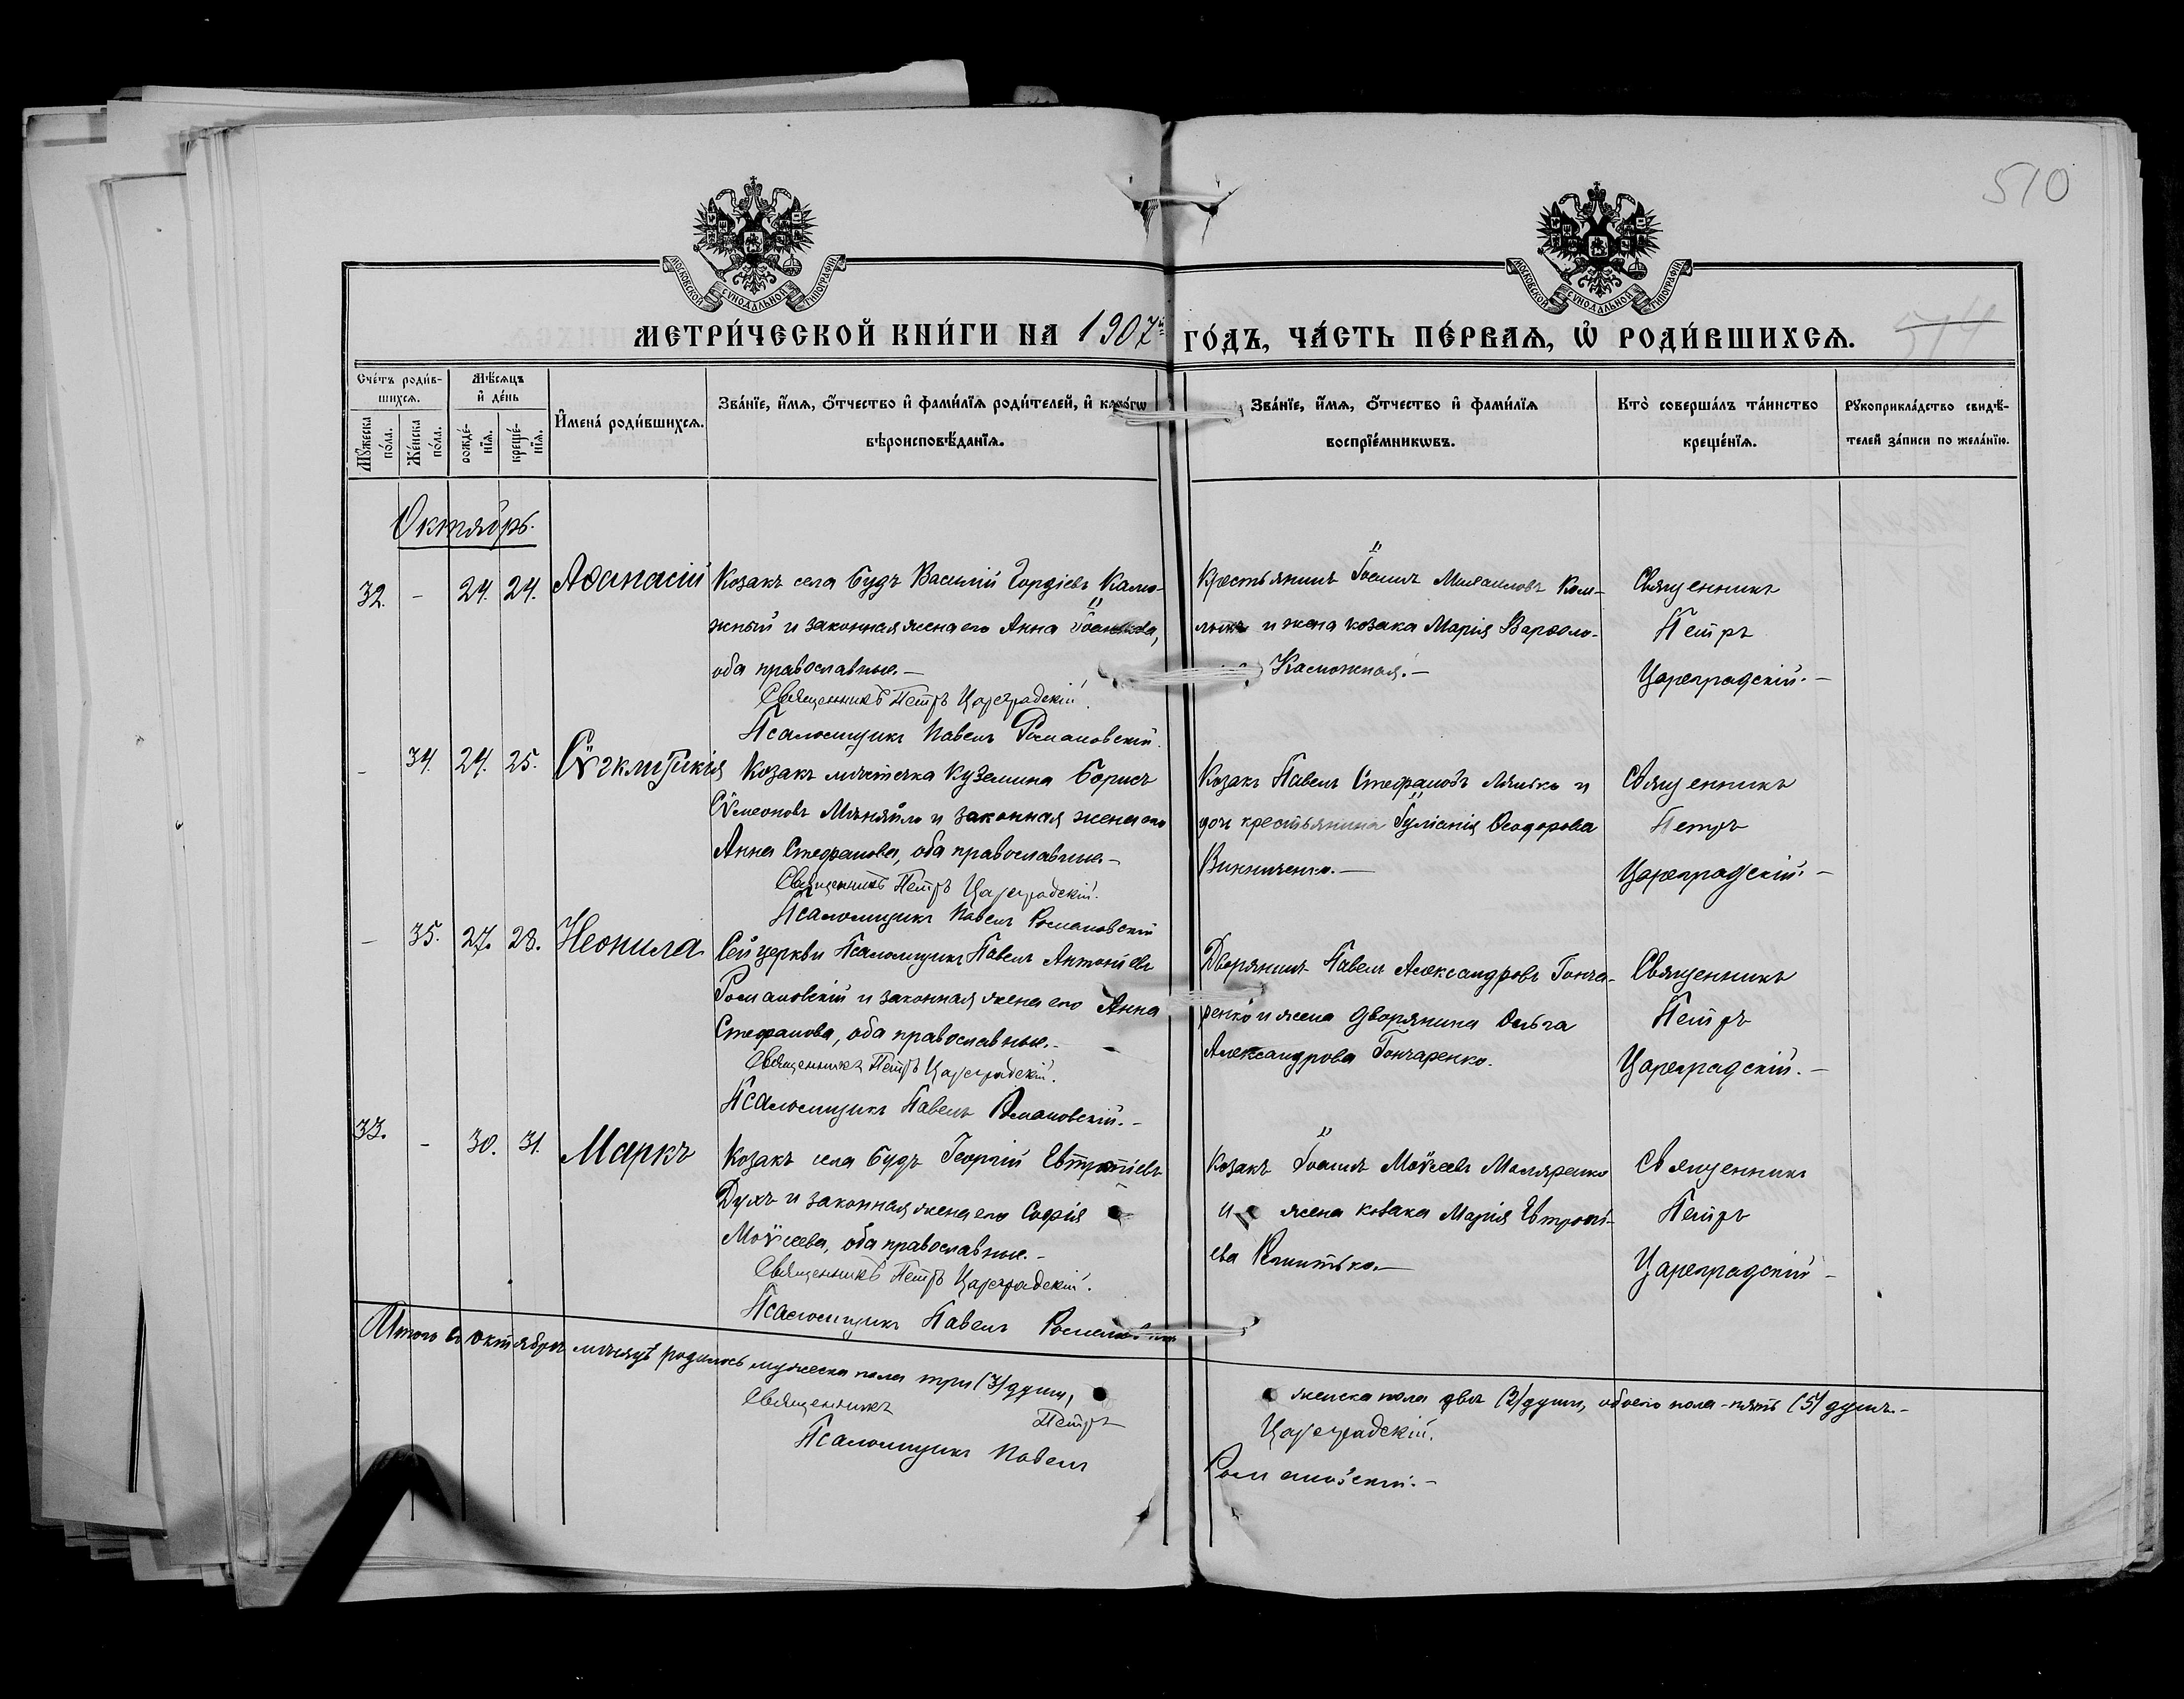 510
МОСКОВСКОЙ СѴНОДАЛЬНОЙ ТИПОГРАФІИ
МОСКОВСКОЙ СѴНОДАЛЬНОЙ ТИПОГРАФІИ
МЕТРИ́ЧЕСКОЙ КНИ́ГИ НА 1907й ГО́ДЪ, ЧА́СТЬ ПЕ́РВАѦ, Ѡ҆ РОДИ́ВШИХСѦ.
514
Сче́тъ роди́в-
шихсѧ.
Мѣ́сѧцъ
и҆ де́нь
Мꙋ́жеска по́ла.
Же́нска по́ла.
рожде́-
нїѧ.
креще́-
нїѧ.
И҆мена̀ роди́вшихсѧ.
Зва́нїе, и҆́мѧ, ѻ҆́тчество и҆ фами́лїѧ роди́телей, и҆ како́гѡ
вѣроисповѣ́данїѧ.
Зва́нїе, и҆́мѧ, ѻ҆́тчество и҆ фами́лїѧ
воспрїе́мникѡвъ.
Кто̀ соверша́лъ та́инство
креще́нїѧ.
Рꙋкоприкла́дство свидѣ́-
телей за́писи по жела́нїю.
Октябрь.
32. - 24. 24. Аѳанасій
Козакъ села Будъ Василій Гордіевъ Камо-
жный и законная жена его Анна
оба православные.-
Священникъ Петръ Цареградскій.
Псаломщикъ Павелъ Романовскій.
Крестьянинъ Іоаннъ Михаиловъ Кол-
и жена козака Марія Варѳоло-
Каможная.-
Священникъ
Петръ
Цареградскій.-
- 34. 24. 25. Сѵгклитикія
Козакъ мѣстечка Куземина Борисъ
Сѵмеоновъ Мѣняйло и законная жена его
Анна Стефанова, оба православные.-
Священникъ Петръ Цареградскій.
Псаломщикъ Павелъ Романовскій
Козакъ Павелъ Стефановъ Ляшко и
дочь крестьянина Іуліанія Ѳеодорова
Винниченко.-
Священникъ
Петръ
Цареградскій.-
- 35. 27. 28. Неонила
Сей церкви Псаломщикъ Павелъ Антоніевъ
Романовскій и законная жена его Анна
Стефанова, оба православные.-
Священникъ Петръ Цареградскій.
Псаломщикъ Павелъ Романовскій.-
Дворянинъ Павелъ Александровъ Гонча-
ренко и жена дворянина Ольга
Александрова Гончаренко.
Священникъ
Петръ
Цареградскій.-
33. - 30. 31. Маркъ
Козакъ села Будъ Георгій Евтропіевъ
Духъ и законная жена его Софія
Моѵсеева, оба православные.-
Священникъ Петръ Цареградскій.
Псаломщикъ Павелъ Романовскій
Козакъ Іоаннъ Моѵсеевъ Моляренко
и жена козака Марія Евтропі-
ева
Священникъ
Петръ
Цареградскій-
Итого въ октябрѣ мѣсяцѣ родилось мужеска пола три (3) души, женска пола двѣ (2) души, обоего пола - пять (5) душъ.-
Священникъ Петръ Цареградскій.
Псаломщикъ Павелъ Романовскій.-